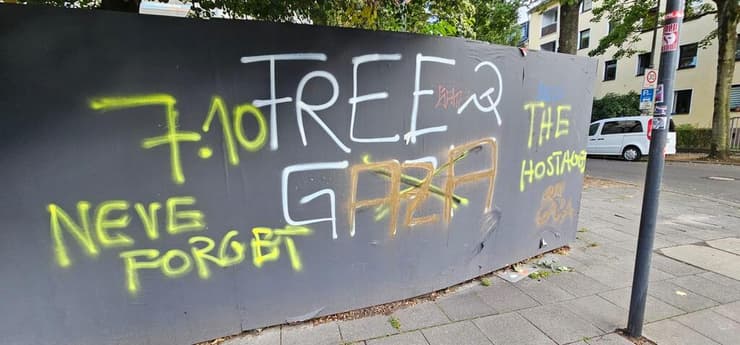 7.10
NEVE
FORGET
FREE
GAZA
THE
HOSTAGES